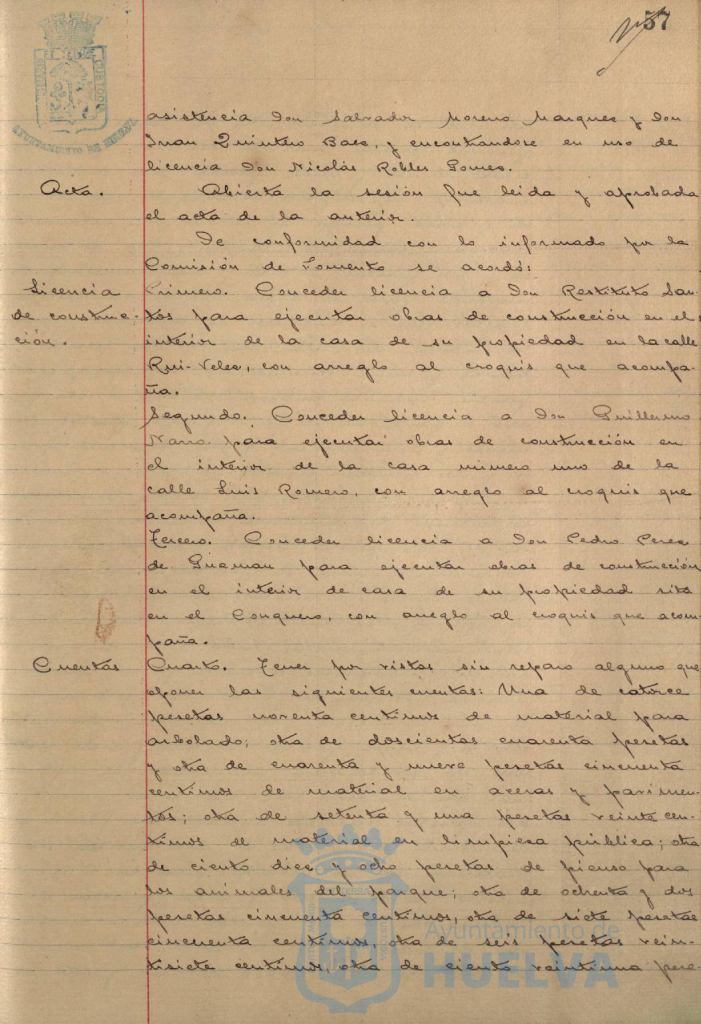 57
AYUNTAMIENTO DE HUELVA
asistencia Don Salvador Moreno Marquez y Don
Juan Quintero Baez, y encontrandose en uso de
licencia Don Nicolás Robles Gomez.
Acta.
Abierta la sesión fue leida y aprobada
el acta de la anterior.
De conformidad con lo informado por la
Comisión de Fomento se acordó:
Licencia
de construc-
ción.
Primero. Conceder licencia a Don Restituto San-
tos para ejecutar obras de construcción en el
interior de la casa de su propiedad en la calle
Rui-Velez, con arreglo al croquis que acompa-
ña.
Segundo. Conceder licencia a Don Guillermo
para ejecutar obras de construcción en
el interior de la casa número uno de la
calle Luis Romero, con arreglo al croquis que
acompaña.
Tercero. Conceder licencia a Don Pedro Perez
de Guzman para ejecutar obras de construcción
en el interior de casa de su propiedad sita
en el Conquero, con arreglo al croquis que acom-
paña.
Cuentas
Cuarto. Tener por vistas sin reparo alguno que
oponer las siguientes cuentas: Una de catorce
pesetas noventa centimos de material para
arbolado; otra de doscientas cuarenta pesetas
y otra de cuarenta y nueve pesetas cincuenta
centimos de material en aceras y pavimen-
tos; otra de setenta y una pesetas veinte cen-
timos de material en limpieza pública; otra
de ciento diez y ocho pesetas de pienso para
los animales del parque; otra de ochenta y dos
pesetas cincuenta centimos, otra de siete pesetas
cincuenta centimos, otra de seis pesetas vein-
tisiete centimos, otra de ciento veintiuna pese-
Ayuntamiento de
HUELVA